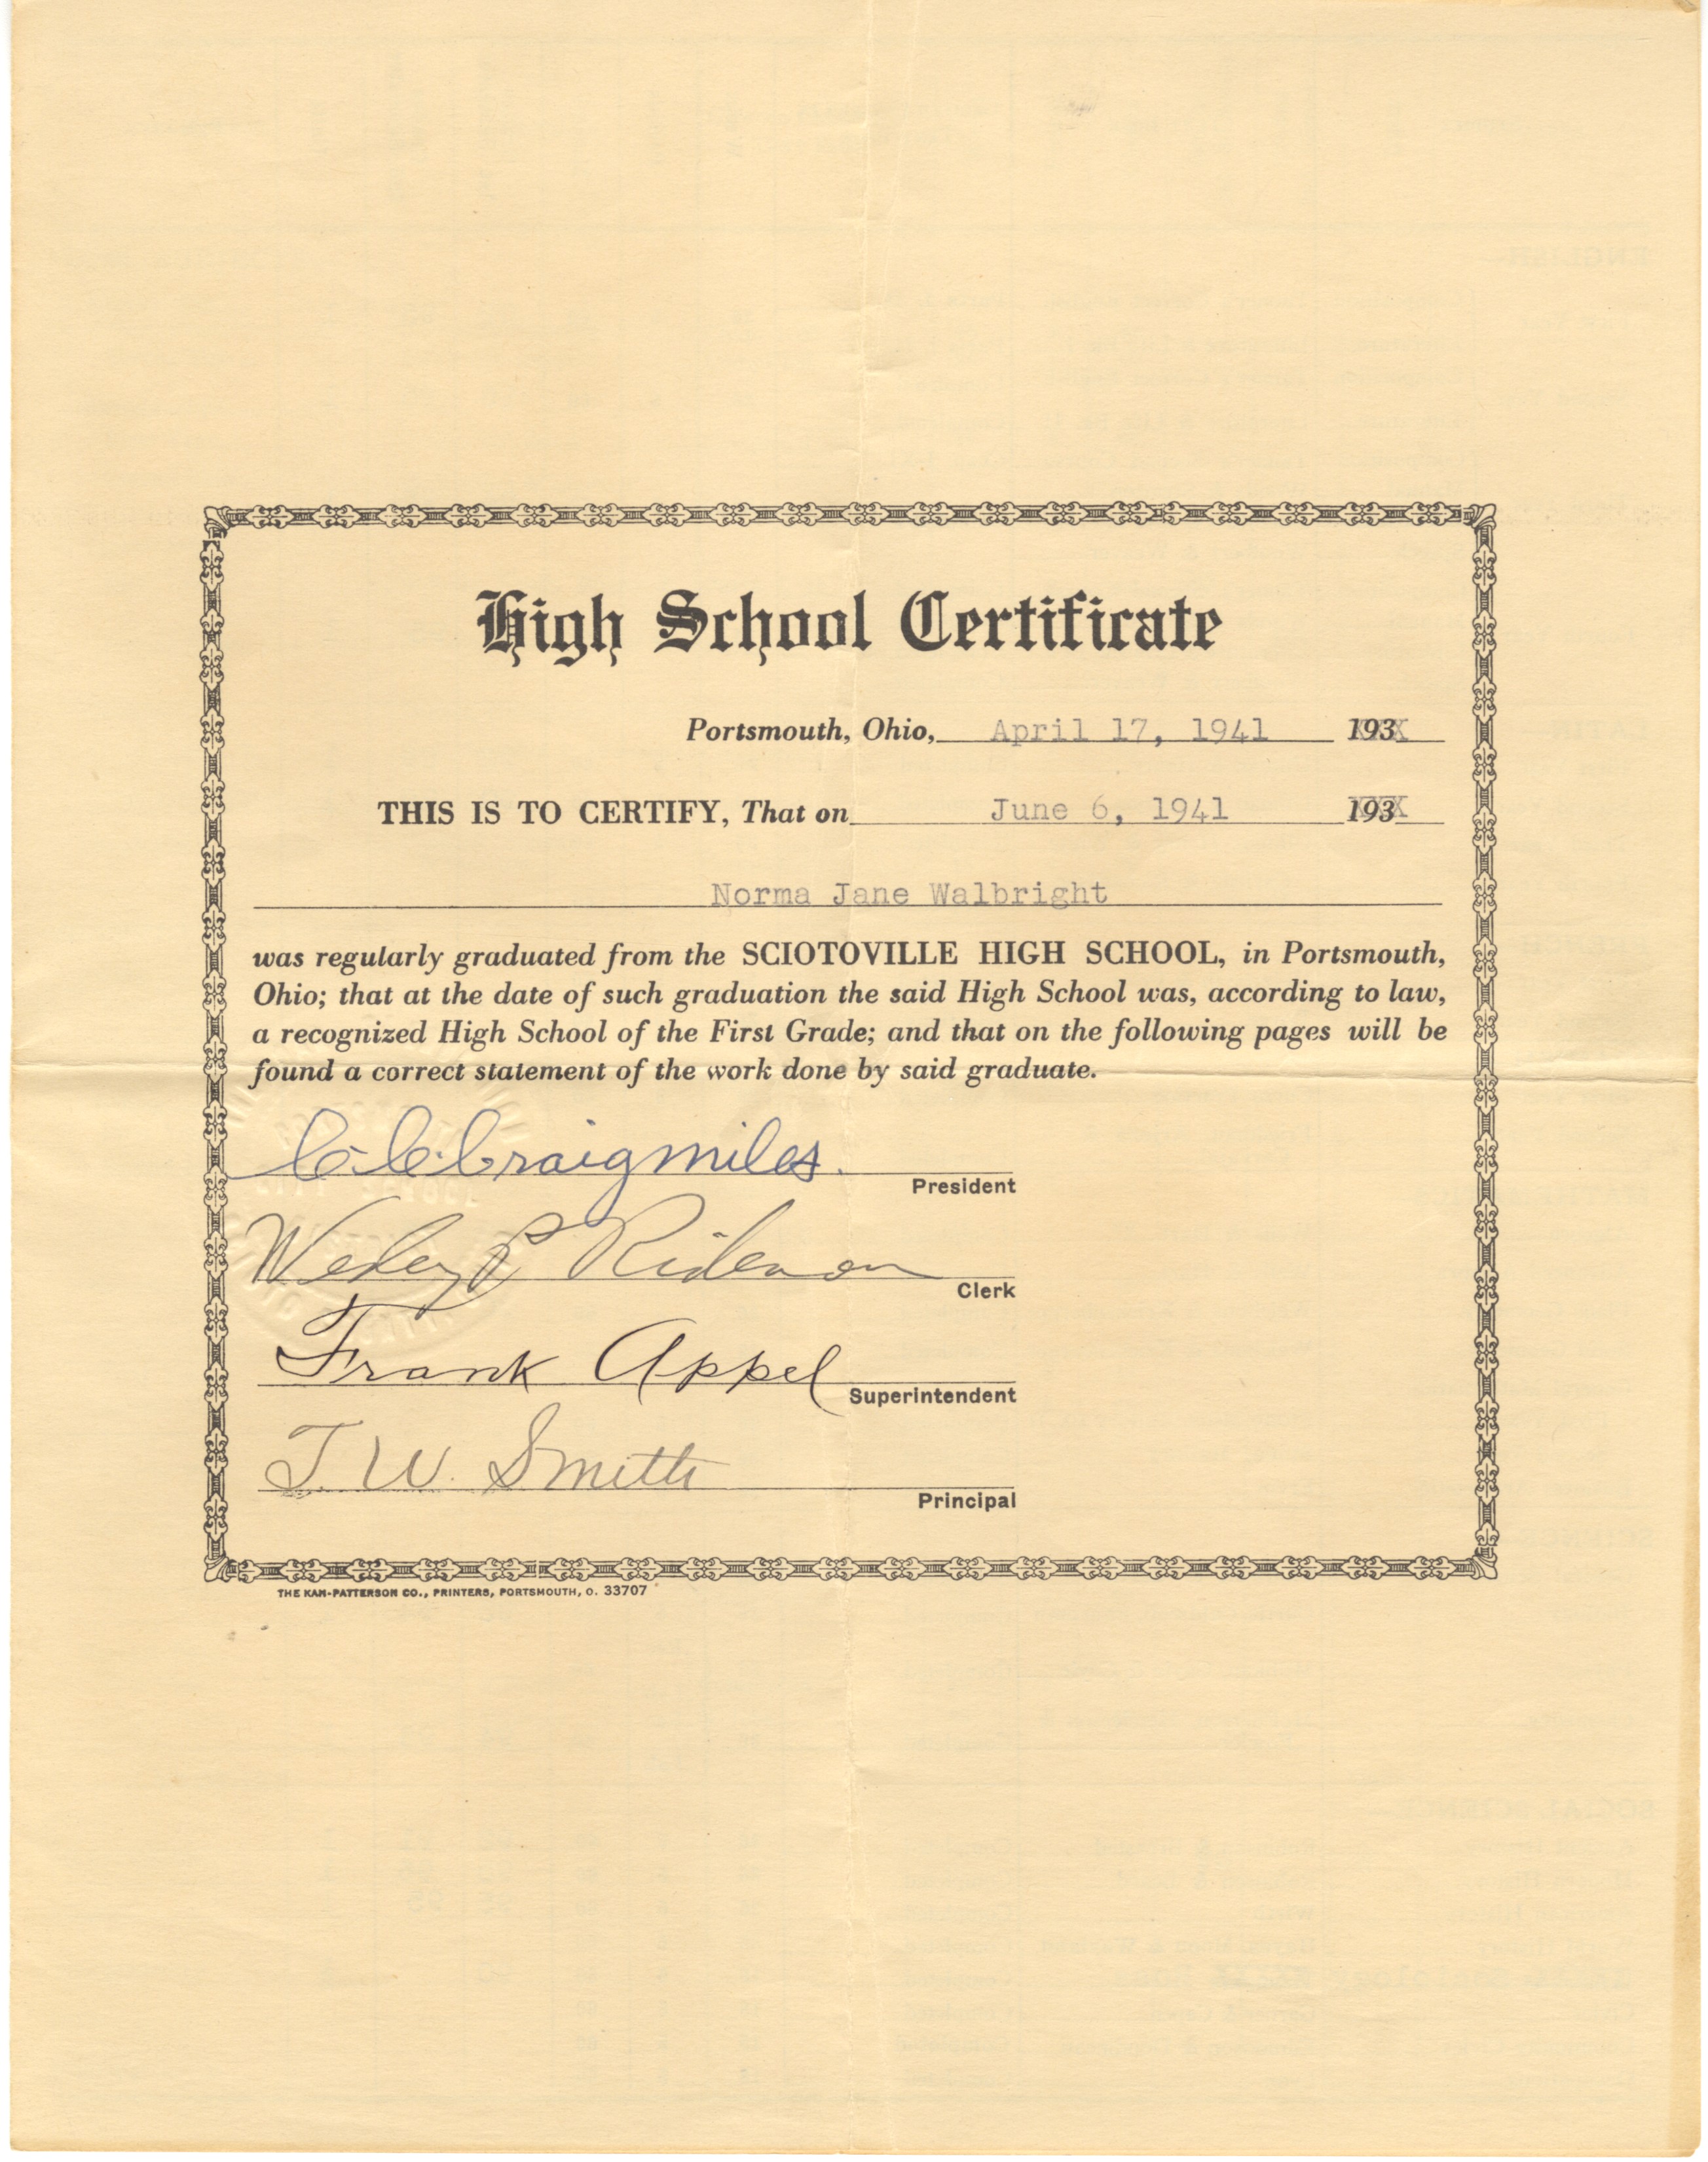 High School Certificate
Portsmouth, Ohio, April 17, 1941 193
THIS IS TO CERTIFY, That on June 6, 1941 193
Norma Jane Walbright
was regularly graduated from the SCIOTOVILLE HIGH SCHOOL, in Portsmouth,
Ohio; that at the date of such graduation the said High School was, according to law,
a recognized High School of the First Grade; and that on the following pages will be
found a correct statement of the work done by said graduate.
C. C. Craigmiles.
President
Wesley P Ridenour
Clerk
Frank Appel
Superintendent
J. W. Smith
Principal
THE KAH-PATTERSON CO., PRINTERS, PORTSMOUTH, O. 33707